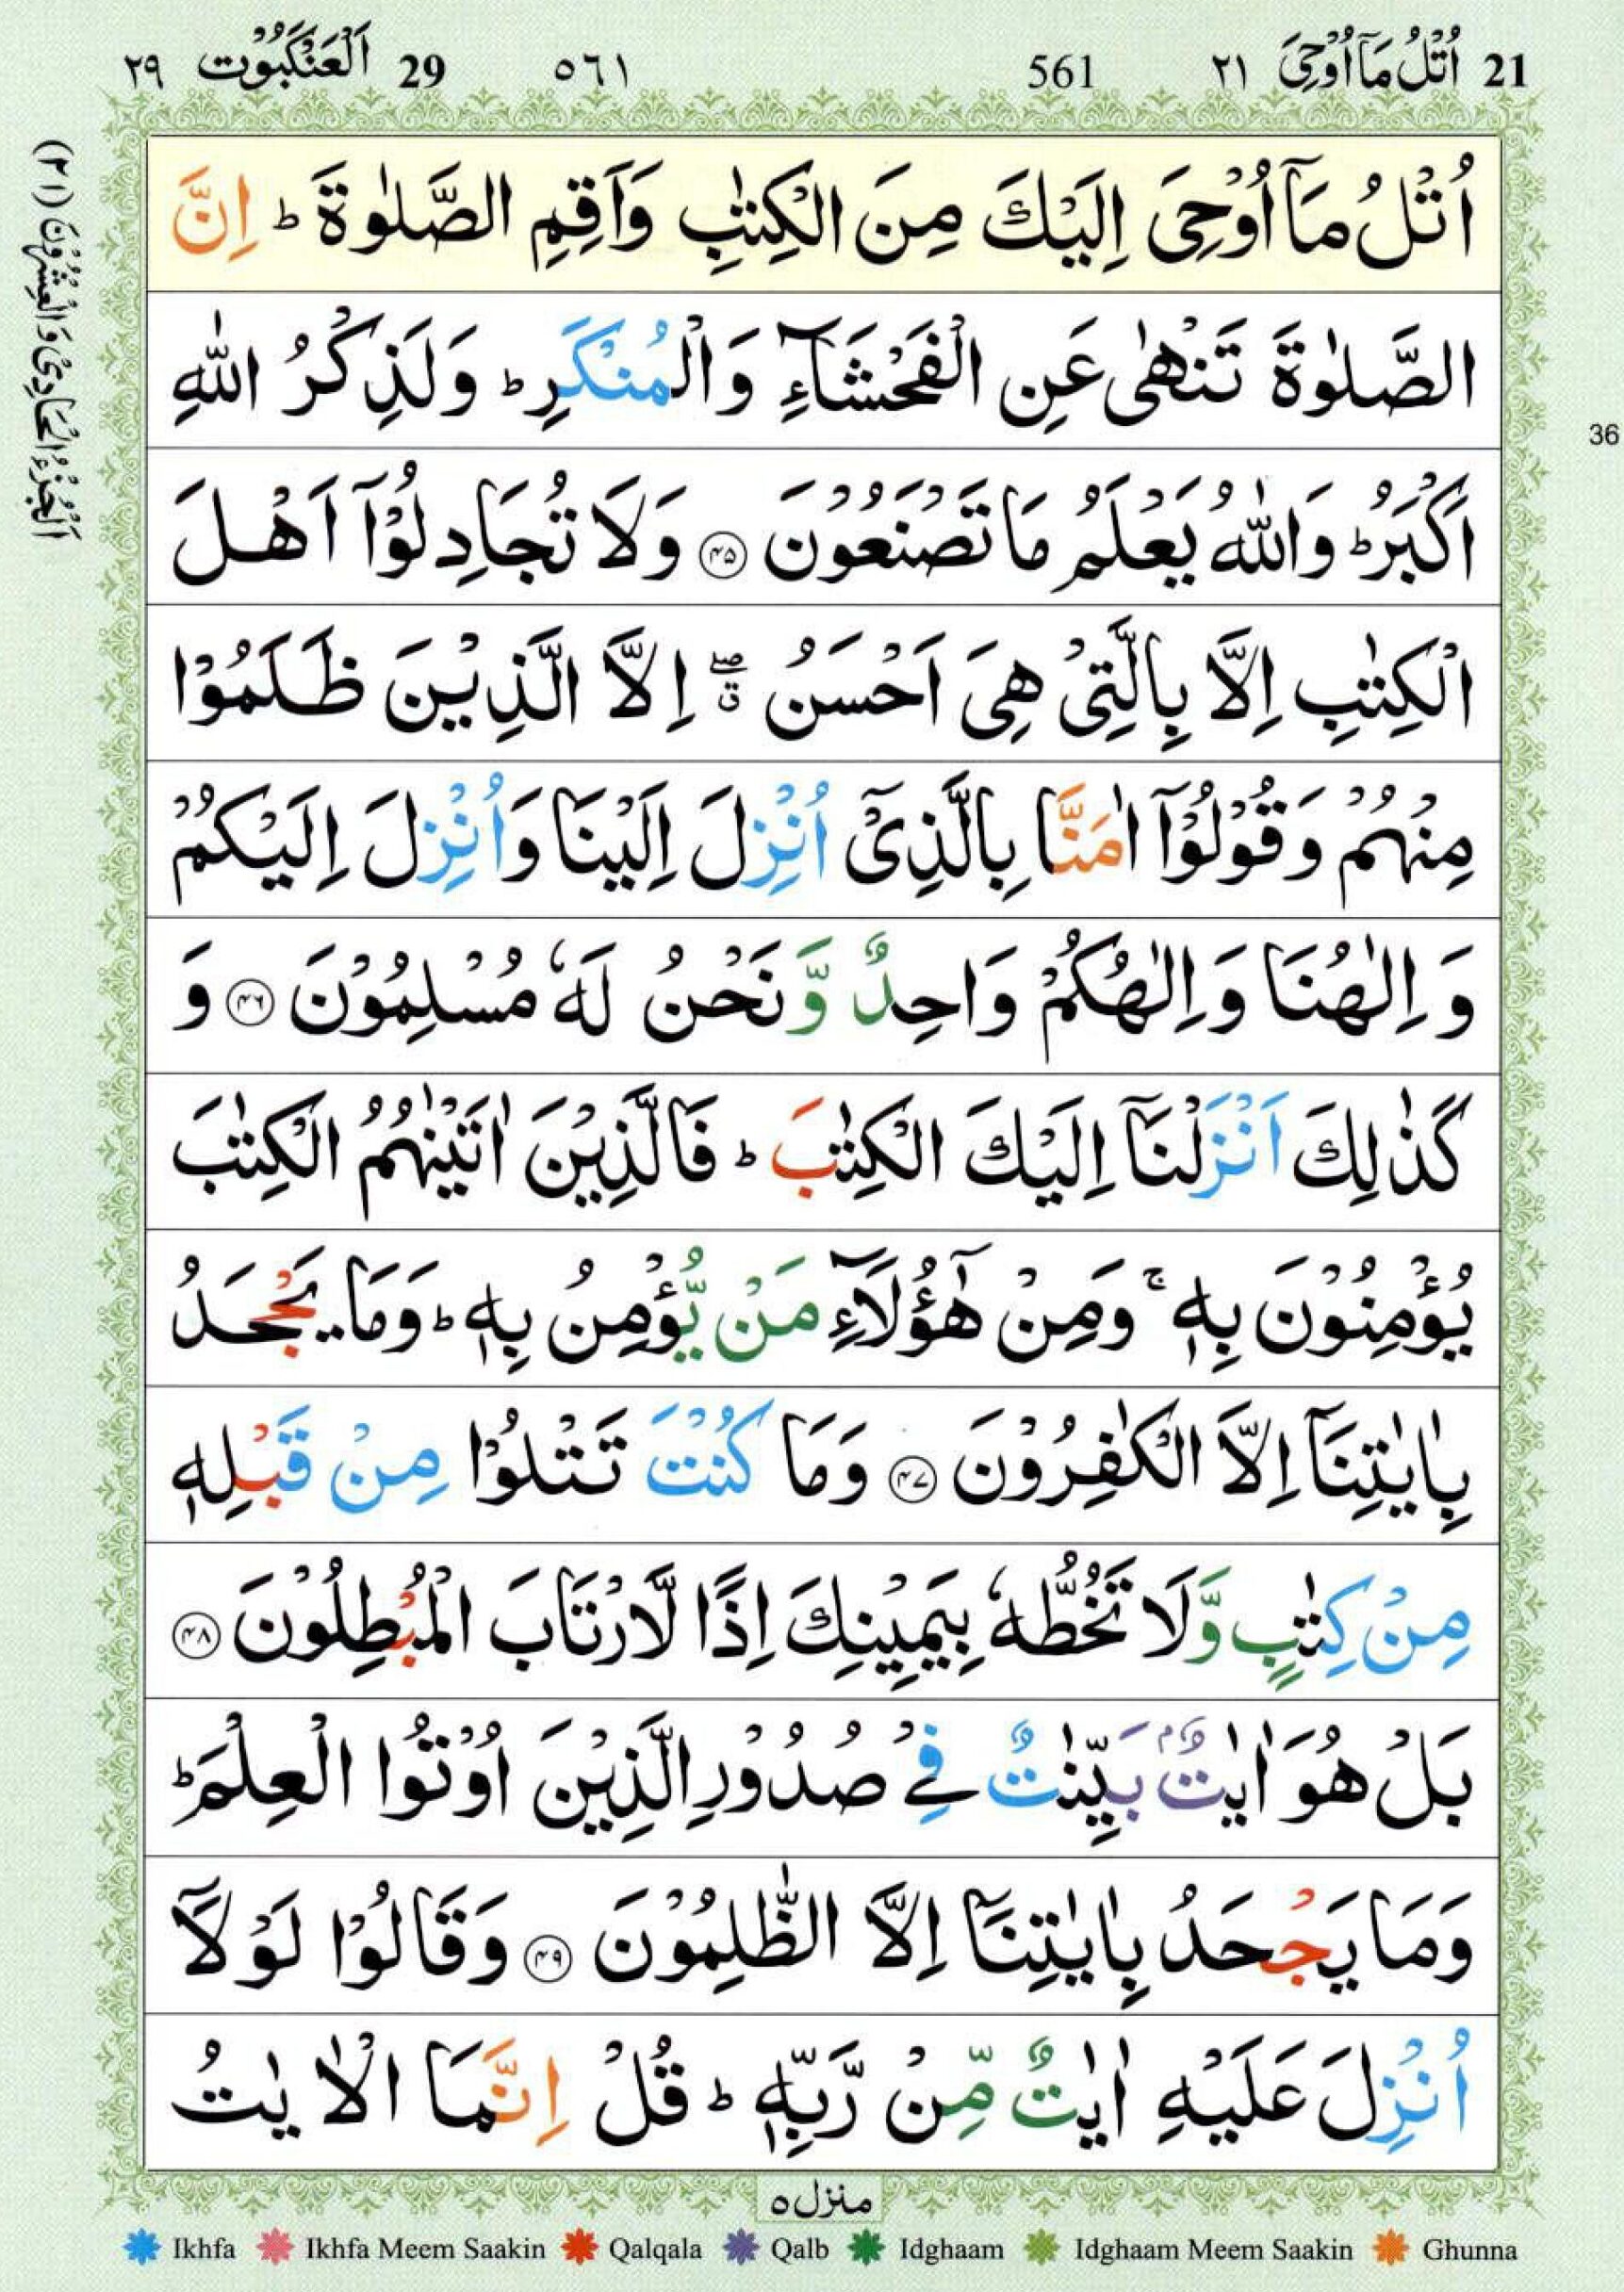 21 اُتْلُ مَاۤ اُوْحِیَ ٢١ 561 ٥٦١ 29 اَلْعَنْكَبُوْت ٢٩
اُتْلُ مَاۤ اُوْحِیَ اِلَیْكَ مِنَ الْكِتٰبِ وَاَقِمِ الصَّلٰوةَ ؕ اِنَّ
الصَّلٰوةَ تَنْهٰی عَنِ الْفَحْشَآءِ وَالْمُنْكَرِ ؕ وَلَذِكْرُ اللّٰهِ
اَكْبَرُ ؕ وَاللّٰهُ یَعْلَمُ مَا تَصْنَعُوْنَ ۝۴۵ وَلَا تُجَادِلُوْۤا اَهْلَ
الْكِتٰبِ اِلَّا بِالَّتِیْ هِیَ اَحْسَنُ ۖۗ اِلَّا الَّذِیْنَ ظَلَمُوْا
مِنْهُمْ وَقُوْلُوْۤا اٰمَنَّا بِالَّذِیْۤ اُنْزِلَ اِلَیْنَا وَاُنْزِلَ اِلَیْكُمْ
وَ اِلٰهُنَا وَ اِلٰهُكُمْ وَاحِدٌ وَّنَحْنُ لَهٗ مُسْلِمُوْنَ ۝۴۶ وَ
كَذٰلِكَ اَنْزَلْنَاۤ اِلَیْكَ الْكِتٰبَ ؕ فَالَّذِیْنَ اٰتَیْنٰهُمُ الْكِتٰبَ
یُؤْمِنُوْنَ بِهٖ ۚ وَمِنْ هٰۤؤُلَآءِ مَنْ یُّؤْمِنُ بِهٖ ؕ وَمَا یَجْحَدُ
بِاٰیٰتِنَاۤ اِلَّا الْكٰفِرُوْنَ ۝۴۷ وَمَا كُنْتَ تَتْلُوْا مِنْ قَبْلِهٖ
مِنْ كِتٰبٍ وَّلَا تَخُطُّهٗ بِیَمِیْنِكَ اِذًا لَّارْتَابَ الْمُبْطِلُوْنَ ۝۴۸
بَلْ هُوَ اٰیٰتٌۢ بَیِّنٰتٌ فِیْ صُدُوْرِ الَّذِیْنَ اُوْتُوا الْعِلْمَ ؕ
وَمَا یَجْحَدُ بِاٰیٰتِنَاۤ اِلَّا الظّٰلِمُوْنَ ۝۴۹ وَقَالُوْا لَوْلَاۤ
اُنْزِلَ عَلَیْهِ اٰیٰتٌ مِّنْ رَّبِّهٖ ؕ قُلْ اِنَّمَا الْاٰیٰتُ
منزل ٥
اَلْجُزْءُ الْحَادِیْ وَالْعِشْرُوْنَ (٢١)
36
Ikhfa Ikhfa Meem Saakin Qalqala Qalb Idghaam Idghaam Meem Saakin Ghunna